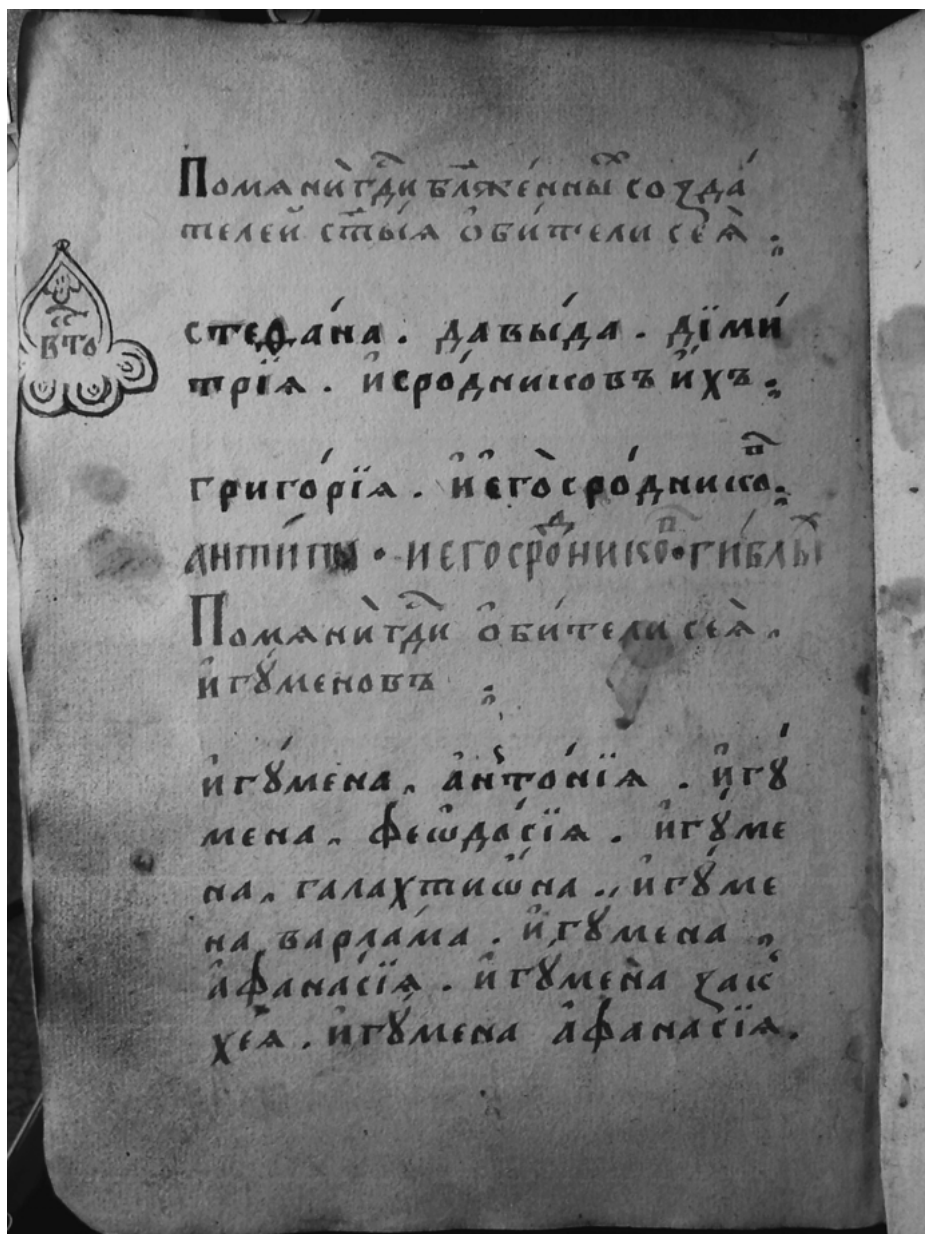 Помѧнѝ гдⷭ҇и бл҃же́нныⷯ созда́
телей ст҃ы́ѧ ѻ҆би́тели сеѧ̀ ⁘
вто
стеѳа́на . давы́да . дїми́
трїѧ . и҆сро́дниковъ и҆́хъ ⁘
григо́рїѧ . и҆ є҆го̀ сро́дникоⷡ ⁘
антипы • иегосроⷣникоⷡ • гиблыⷯ
Помѧнѝ гдⷭ҇и ѻ҆би́тели сеѧ̀ .
и҆гꙋ́меновъ ⁘
и҆гꙋ́мена . а҆нто́нїѧ . и҆гꙋ́
мена . феѡдо́сїѧ . и҆гꙋ́ме
на . галахтиѡ́на . и҆гꙋ́ме
на варла́ма . и҆гꙋ́мена .
а҆фана́сїѧ . и҆гꙋ́мена зак
хе́ѧ . и҆гꙋ́мена а҆фана́сїѧ .